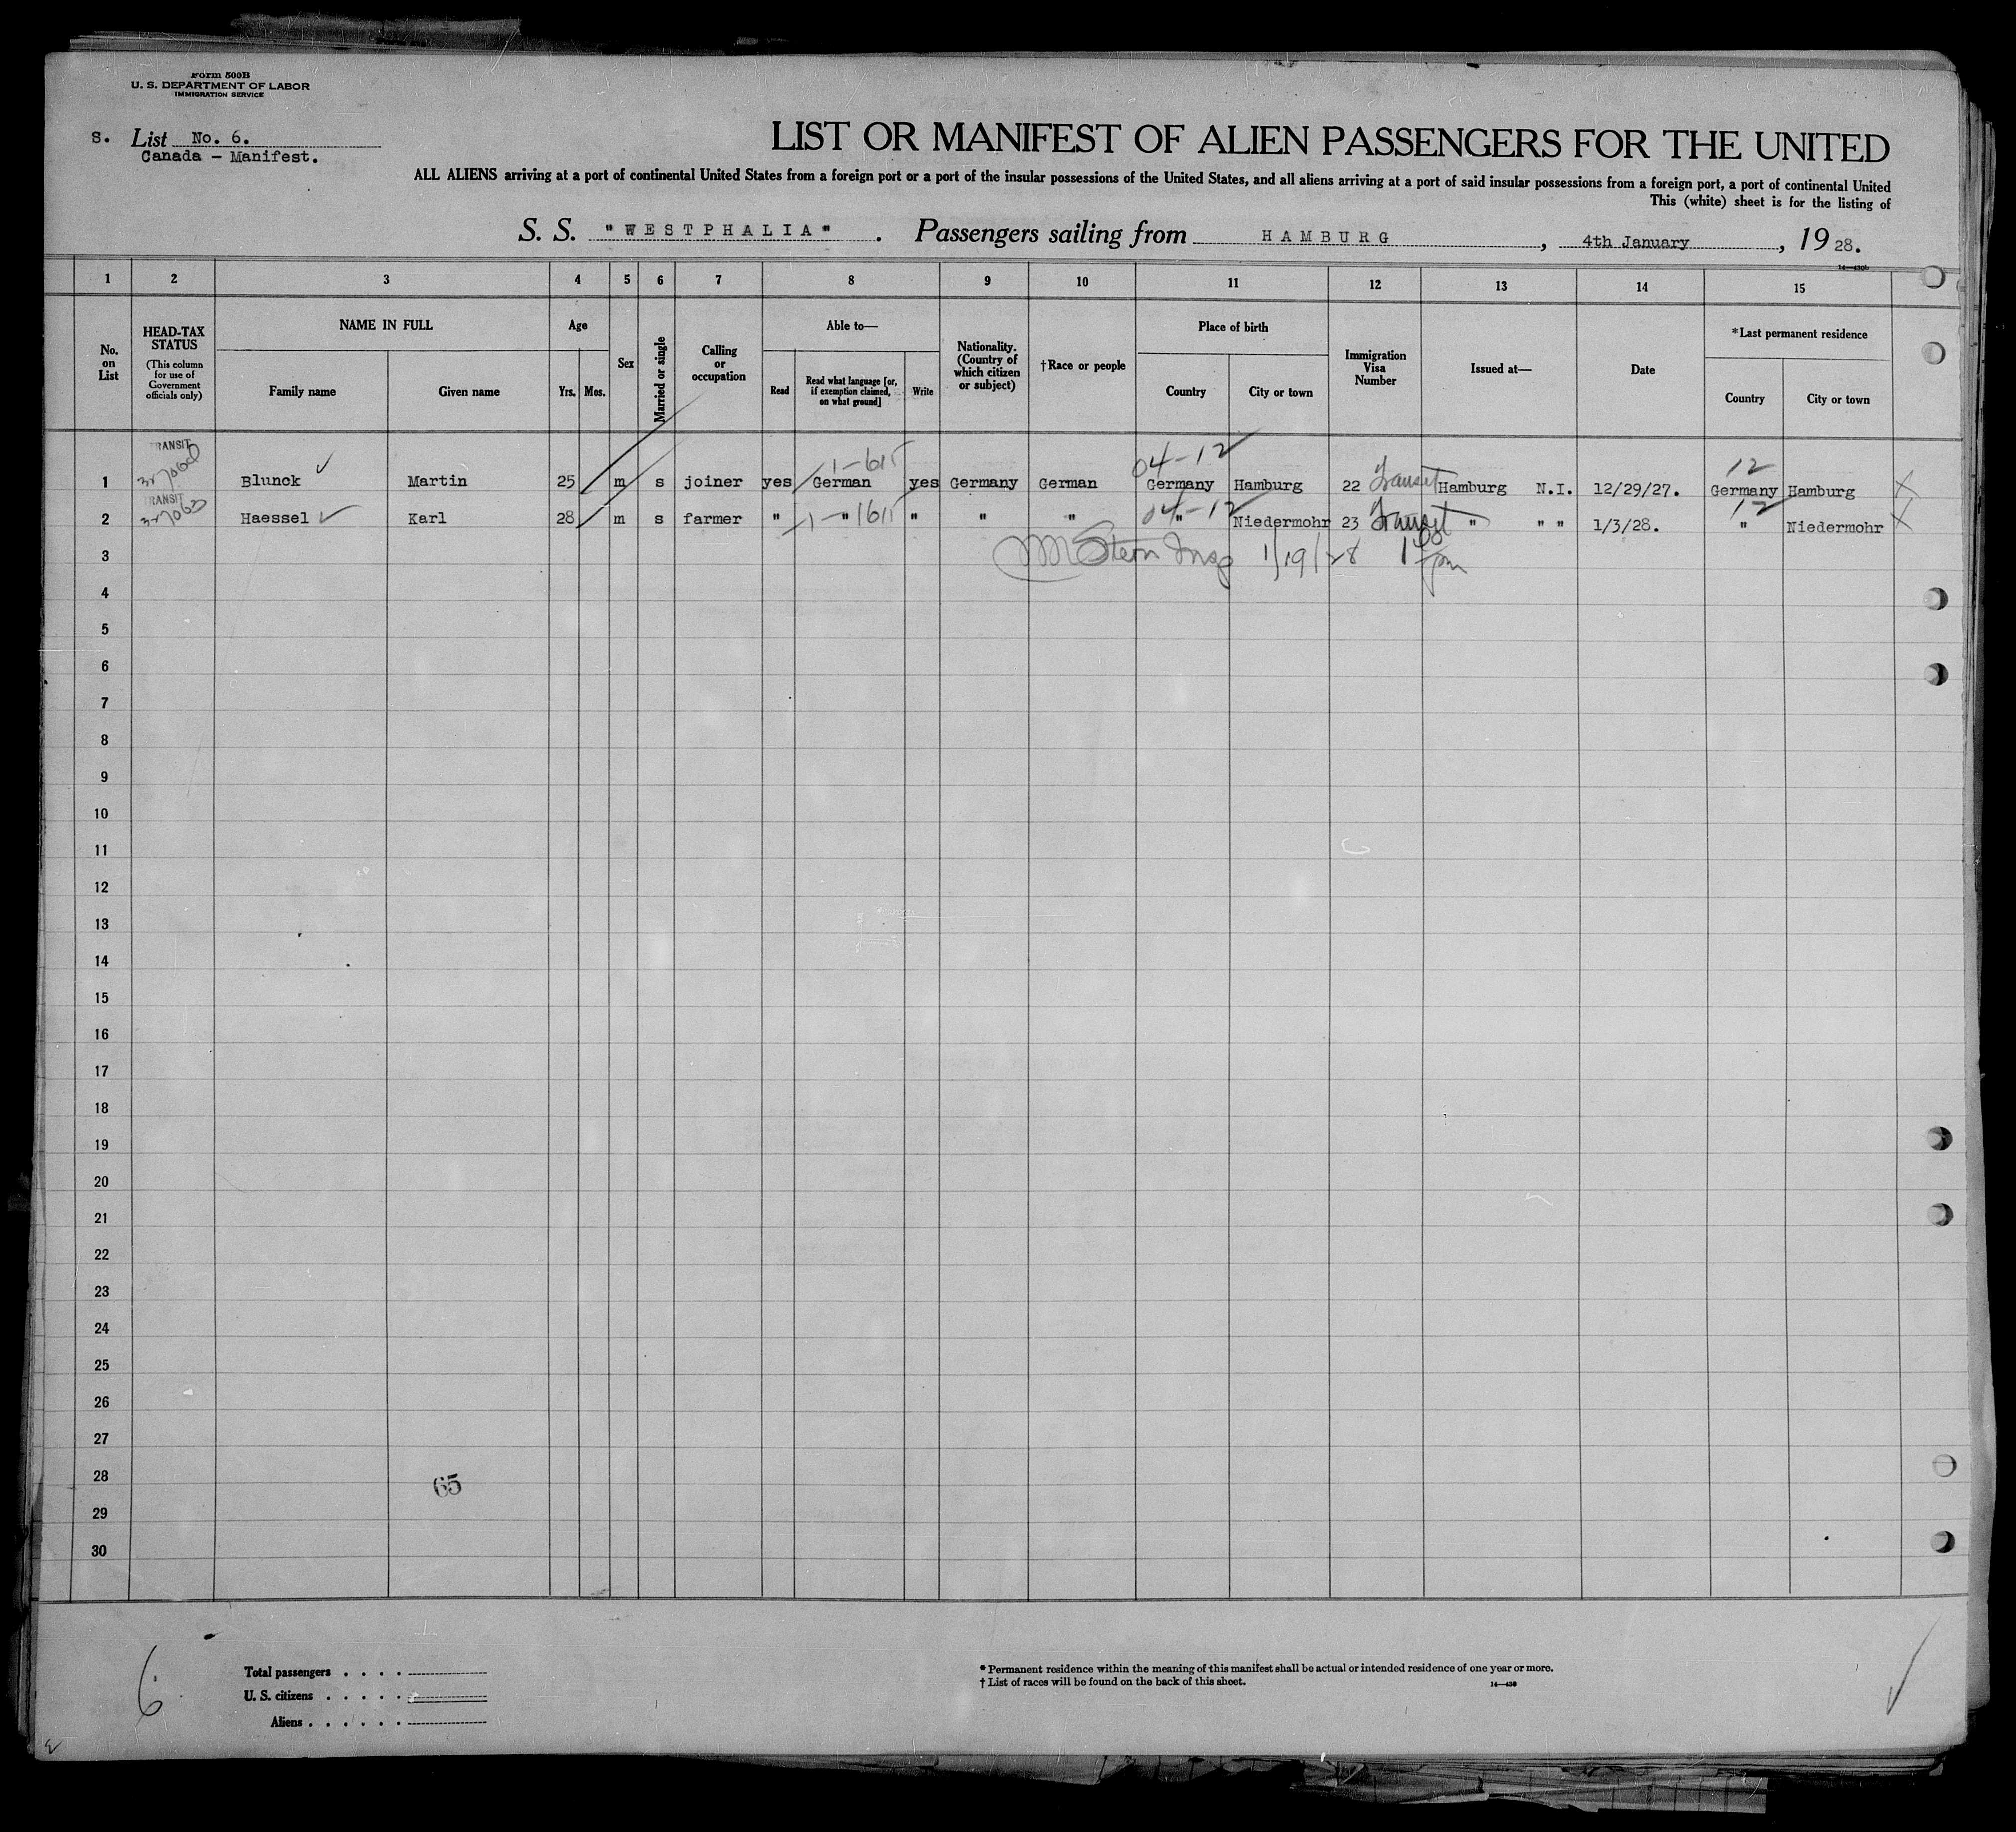 Form 500B
U. S. DEPARTMENT OF LABOR
IMMIGRATION SERVICE
S. List No. 6.
Canada - Manifest.
LIST OR MANIFEST OF ALIEN PASSENGERS FOR THE UNITED
ALL ALIENS arriving at a port of continental United States from a foreign port or a port of the insular possessions of the United States, and all aliens arriving at a port of said insular possessions from a foreign port, a port of continental United
This (white) sheet is for the listing of
S. S. "WESTPHALIA". Passengers sailing from HAMBURG, 4th January, 1928.
14—430b
1 2 3 4 5 6 7 8 9 10 11 12 13 14 15
No. on List
HEAD-TAX STATUS
(This column for use of Government officials only)
NAME IN FULL
Family name
Given name
Age
Yrs. Mos.
Sex
Married or single
Calling or occupation
Able to—
Read
Read what language [or, if exemption claimed, on what ground]
Write
Nationality. (Country of which citizen or subject)
†Race or people
Place of birth
Country
City or town
Immigration Visa Number
Issued at—
Date
*Last permanent residence
Country
City or town
TRANSIT 04-12 12
1 Blunck Martin 25 m s joiner yes German yes Germany German Germany Hamburg 22 Transit Hamburg N.I. 12/29/27. Germany Hamburg
TRANSIT 04-12 12
2 Haessel Karl 28 m s farmer " " " " " " Niedermohr 23 Transit " " " 1/3/28. " Niedermohr
3 Stern Insp 1/19/28
4
5
6
7
8
9
10
11
12
13
14
15
16
17
18
19
20
21
22
23
24
25
26
27
28 65
29
30
6
Total passengers . . . .
U. S. citizens . . . . .
Aliens . . . . . .
* Permanent residence within the meaning of this manifest shall be actual or intended residence of one year or more.
† List of races will be found on the back of this sheet.
14—430